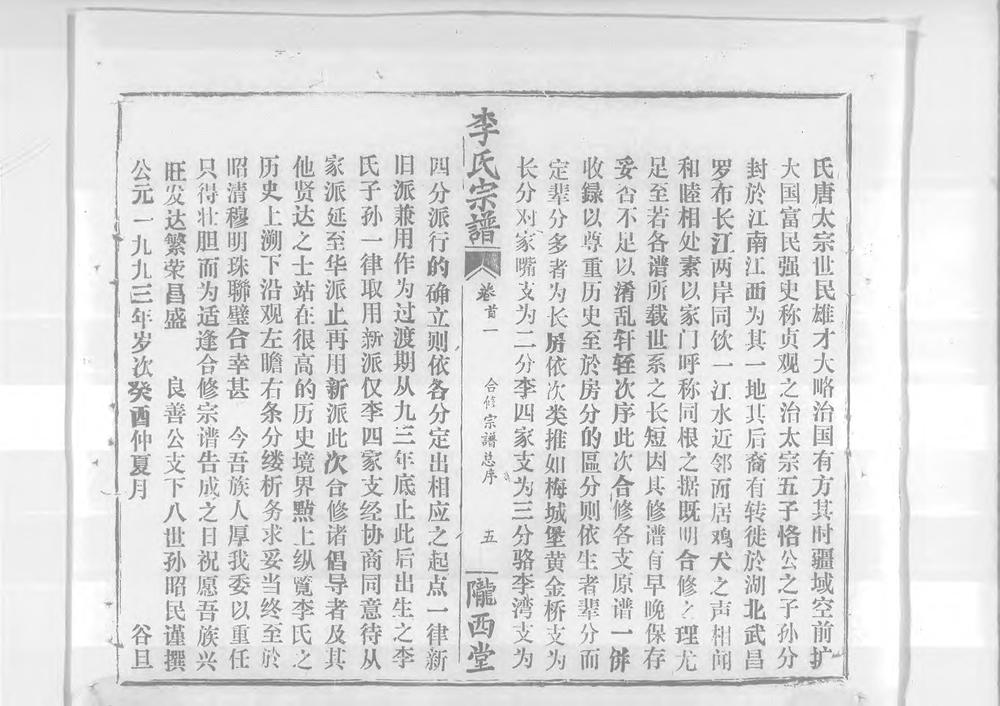 氏唐太宗世民雄才大略治国有方其时疆域空前扩
大国富民强史称贞观之治太宗五子恪公之子孙分
封於江南江西为其一地其后裔有转徙於湖北武昌
罗布长江两岸同饮一江水近邻而居鸡犬之声相闻
和睦相处素以家门呼称同根之据既明合修之理尤
足至若各谱所载世系之长短因其修谱有早晚保存
妥否不足以淆乱轩轾次序此次合修各支原谱一併
收録以尊重历史至於房分的區分则依生者辈分而
定辈分多者为长房依次类推如梅城堡黄金桥支为
长分对家嘴支为二分李四家支为三分骆李湾支为
李氏宗譜
卷首一
合修宗譜总序
五
隴西堂
四分派行的确立则依各分定出相应之起点一律新
旧派兼用作为过渡期从九三年底止此后出生之李
氏子孙一律取用新派仅李四家支经协商同意待从
家派延至华派止再用新派此次合修诸倡导者及其
他贤达之士站在很高的历史境界點上纵覧李氏之
历史上溯下沿观左瞻右条分缕析务求妥当终至於
昭清穆明珠聯璧合幸甚 今吾族人厚我委以重任
只得壮胆而为适逢合修宗谱告成之日祝愿吾族兴
旺发达繁荣昌盛 良善公支下八世孙昭民谨撰
公元一九九三年岁次癸酉仲夏月 谷旦